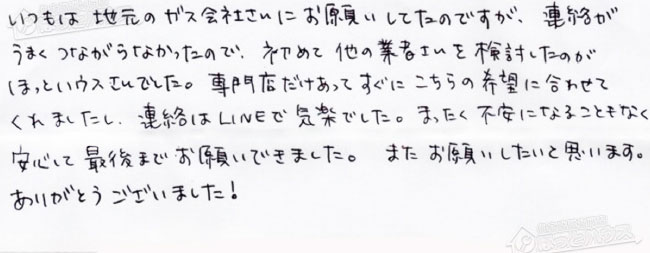 いつもは 地元の ガス会社さんに お願いしてたのですが、 連絡が
うまく つながらなかったので、 初めて 他の業者さんを 検討したのが
ほっとハウスさんでした。 専門店だけあって すぐに こちらの希望に合わせて
くれましたし、 連絡はLINEで 気楽でした。 まったく 不安になることもなく
安心して 最後まで お願いできました。 また お願いしたいと思います。
ありがとう ございました!